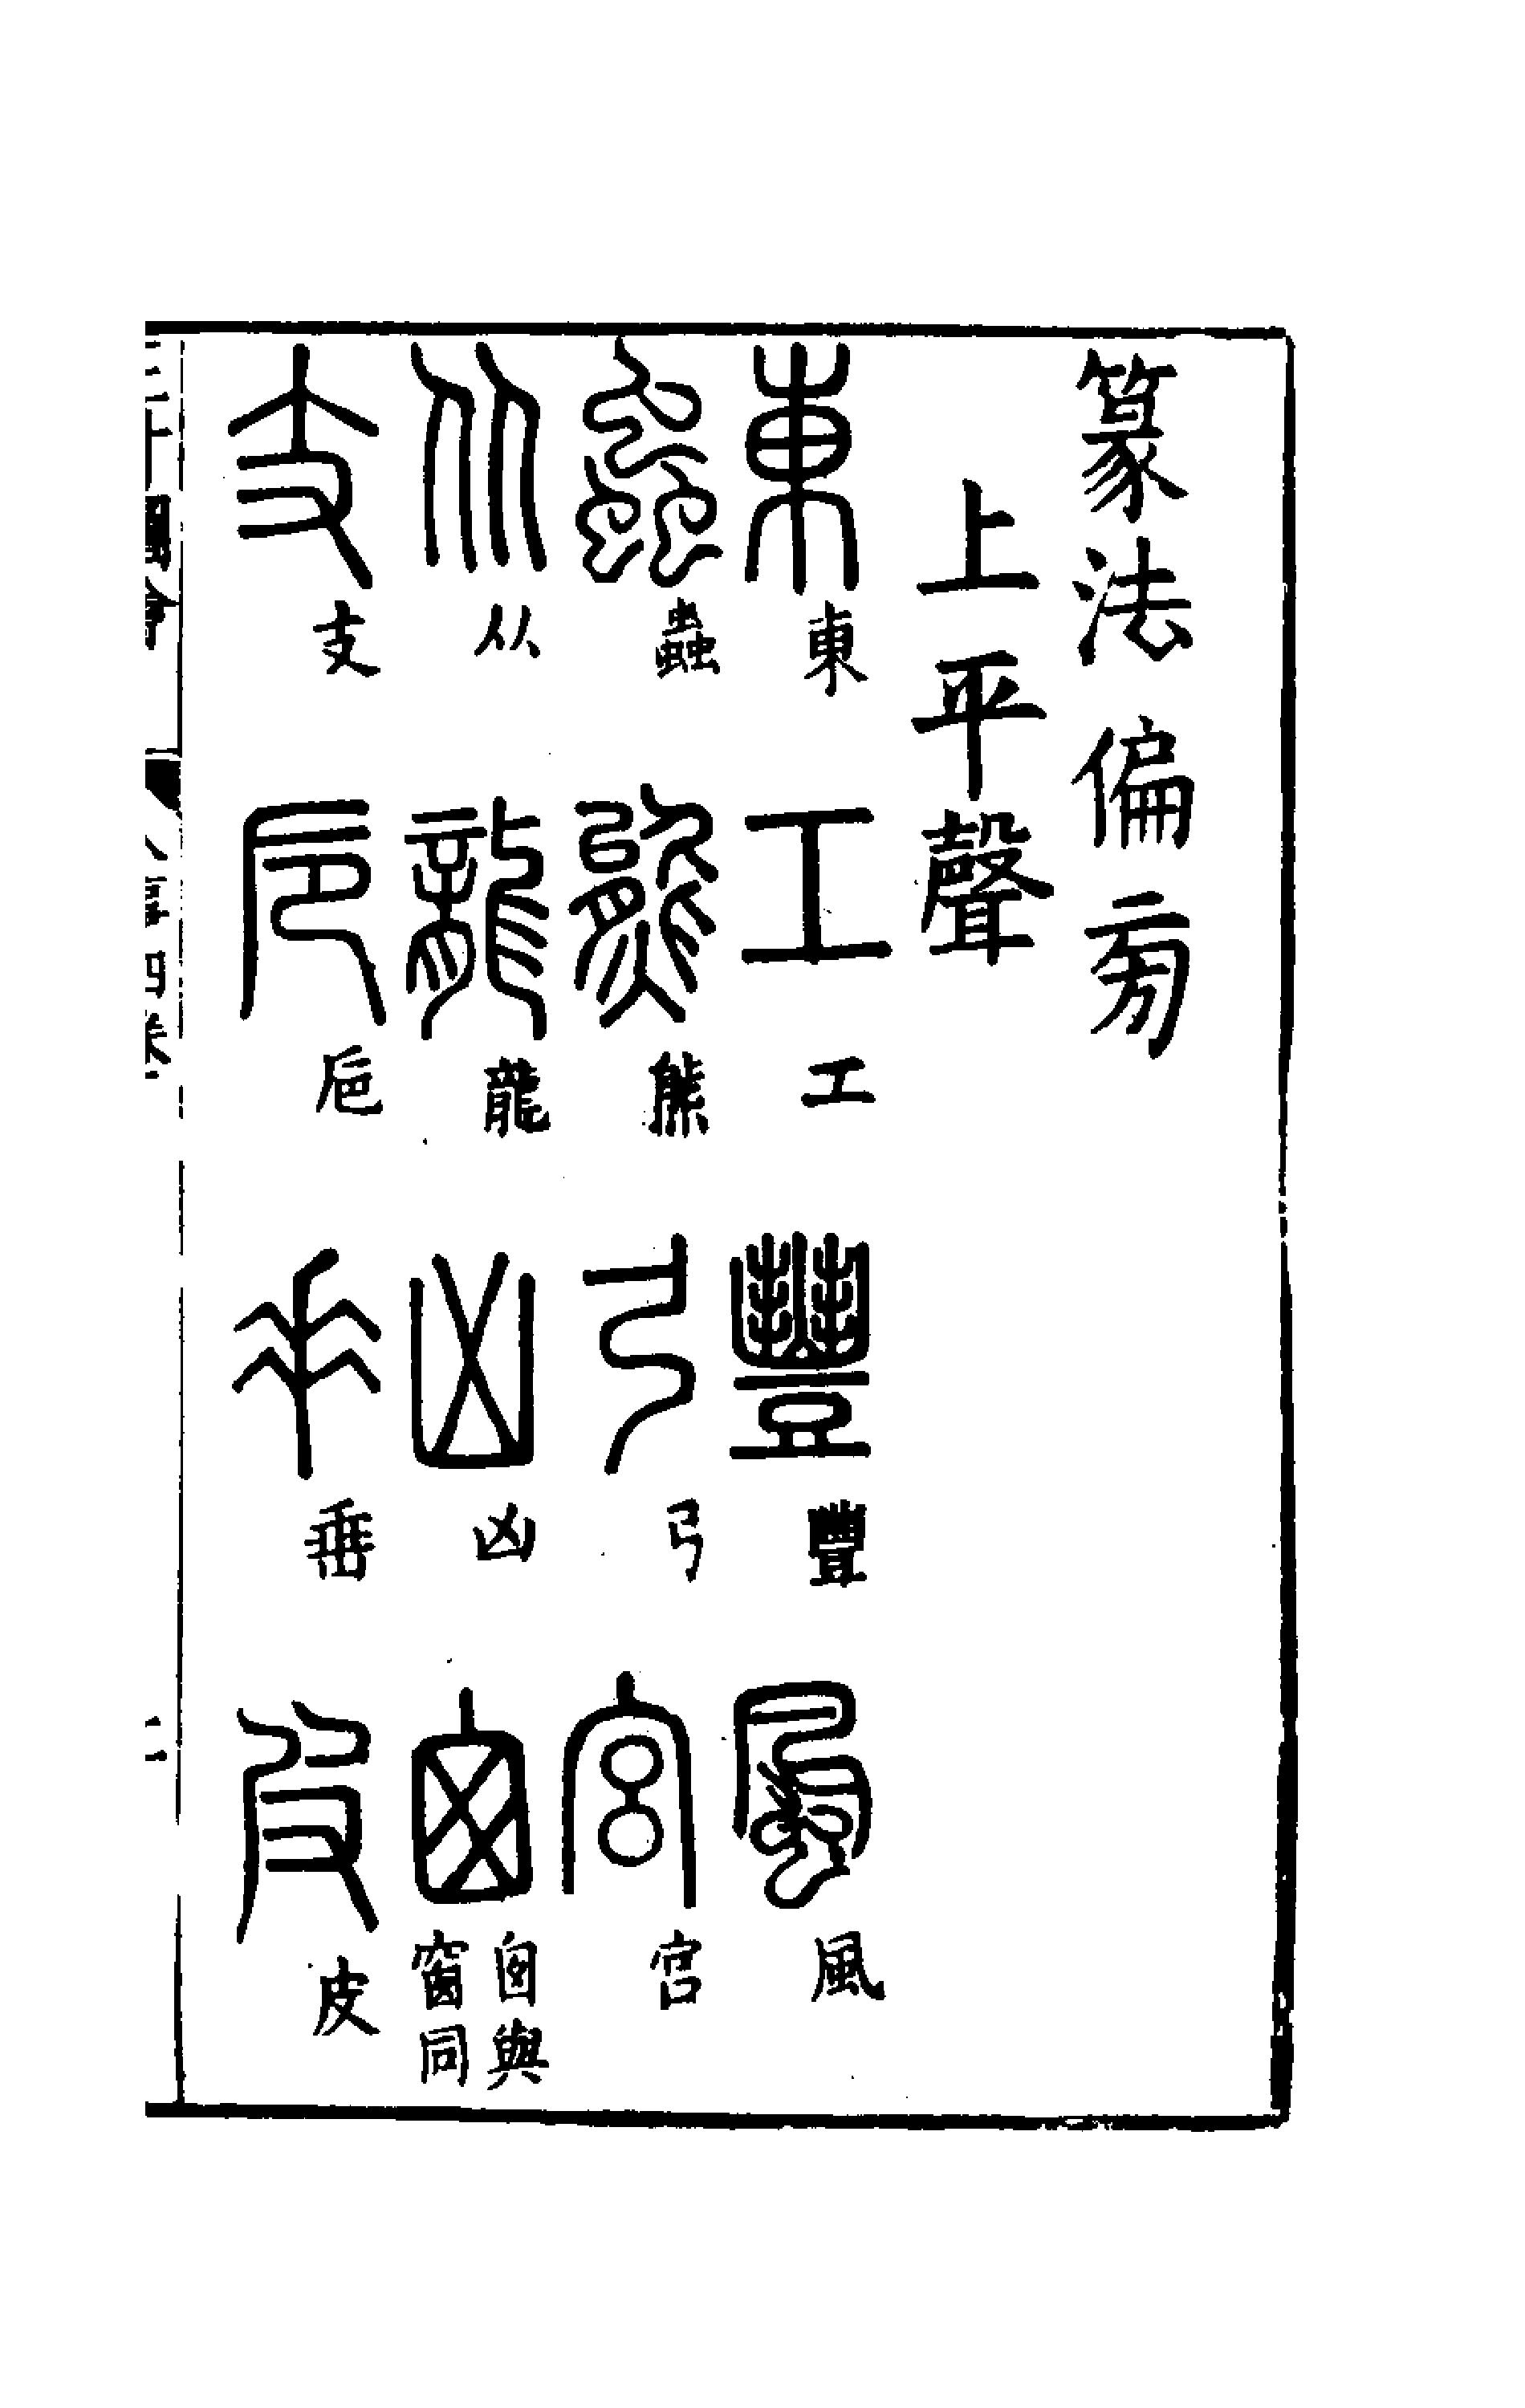 篆法偏旁
上平聲
東 工 豐 風
蟲 熊 弓 宮
从 龍 凶 囪與窗同
支 巵 垂 皮